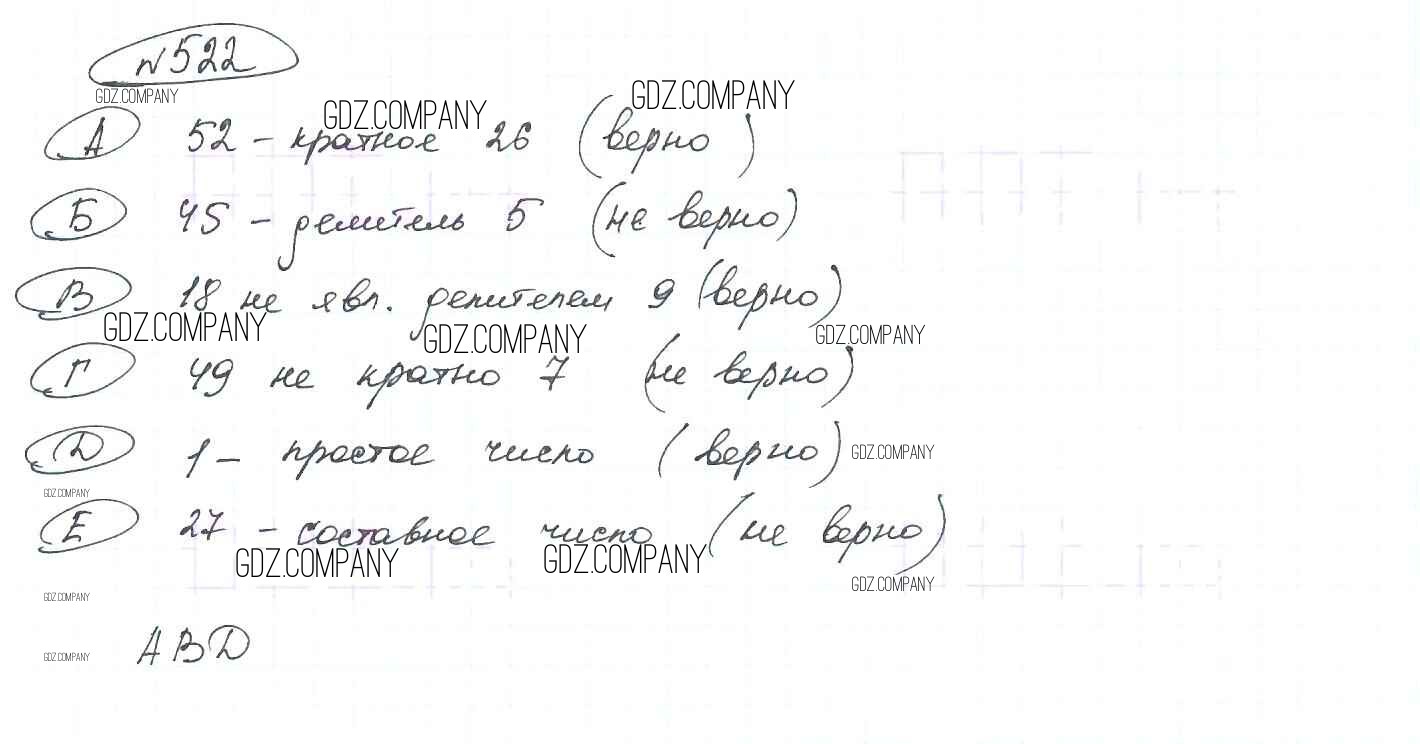 N522
GDZ.COMPANY
GDZ.COMPANY GDZ.COMPANY
А 52 – кратное 26 (верно)
Б 45 – делитель 5 (не верно)
В 18 не явл. делителем 9 (верно)
GDZ.COMPANY GDZ.COMPANY GDZ.COMPANY
Г 49 не кратно 7 (не верно)
Д 1 – простое число (верно) GDZ.COMPANY
GDZ.COMPANY
Е 27 – составное число (не верно)
GDZ.COMPANY GDZ.COMPANY GDZ.COMPANY
GDZ.COMPANY
GDZ.COMPANY АВД